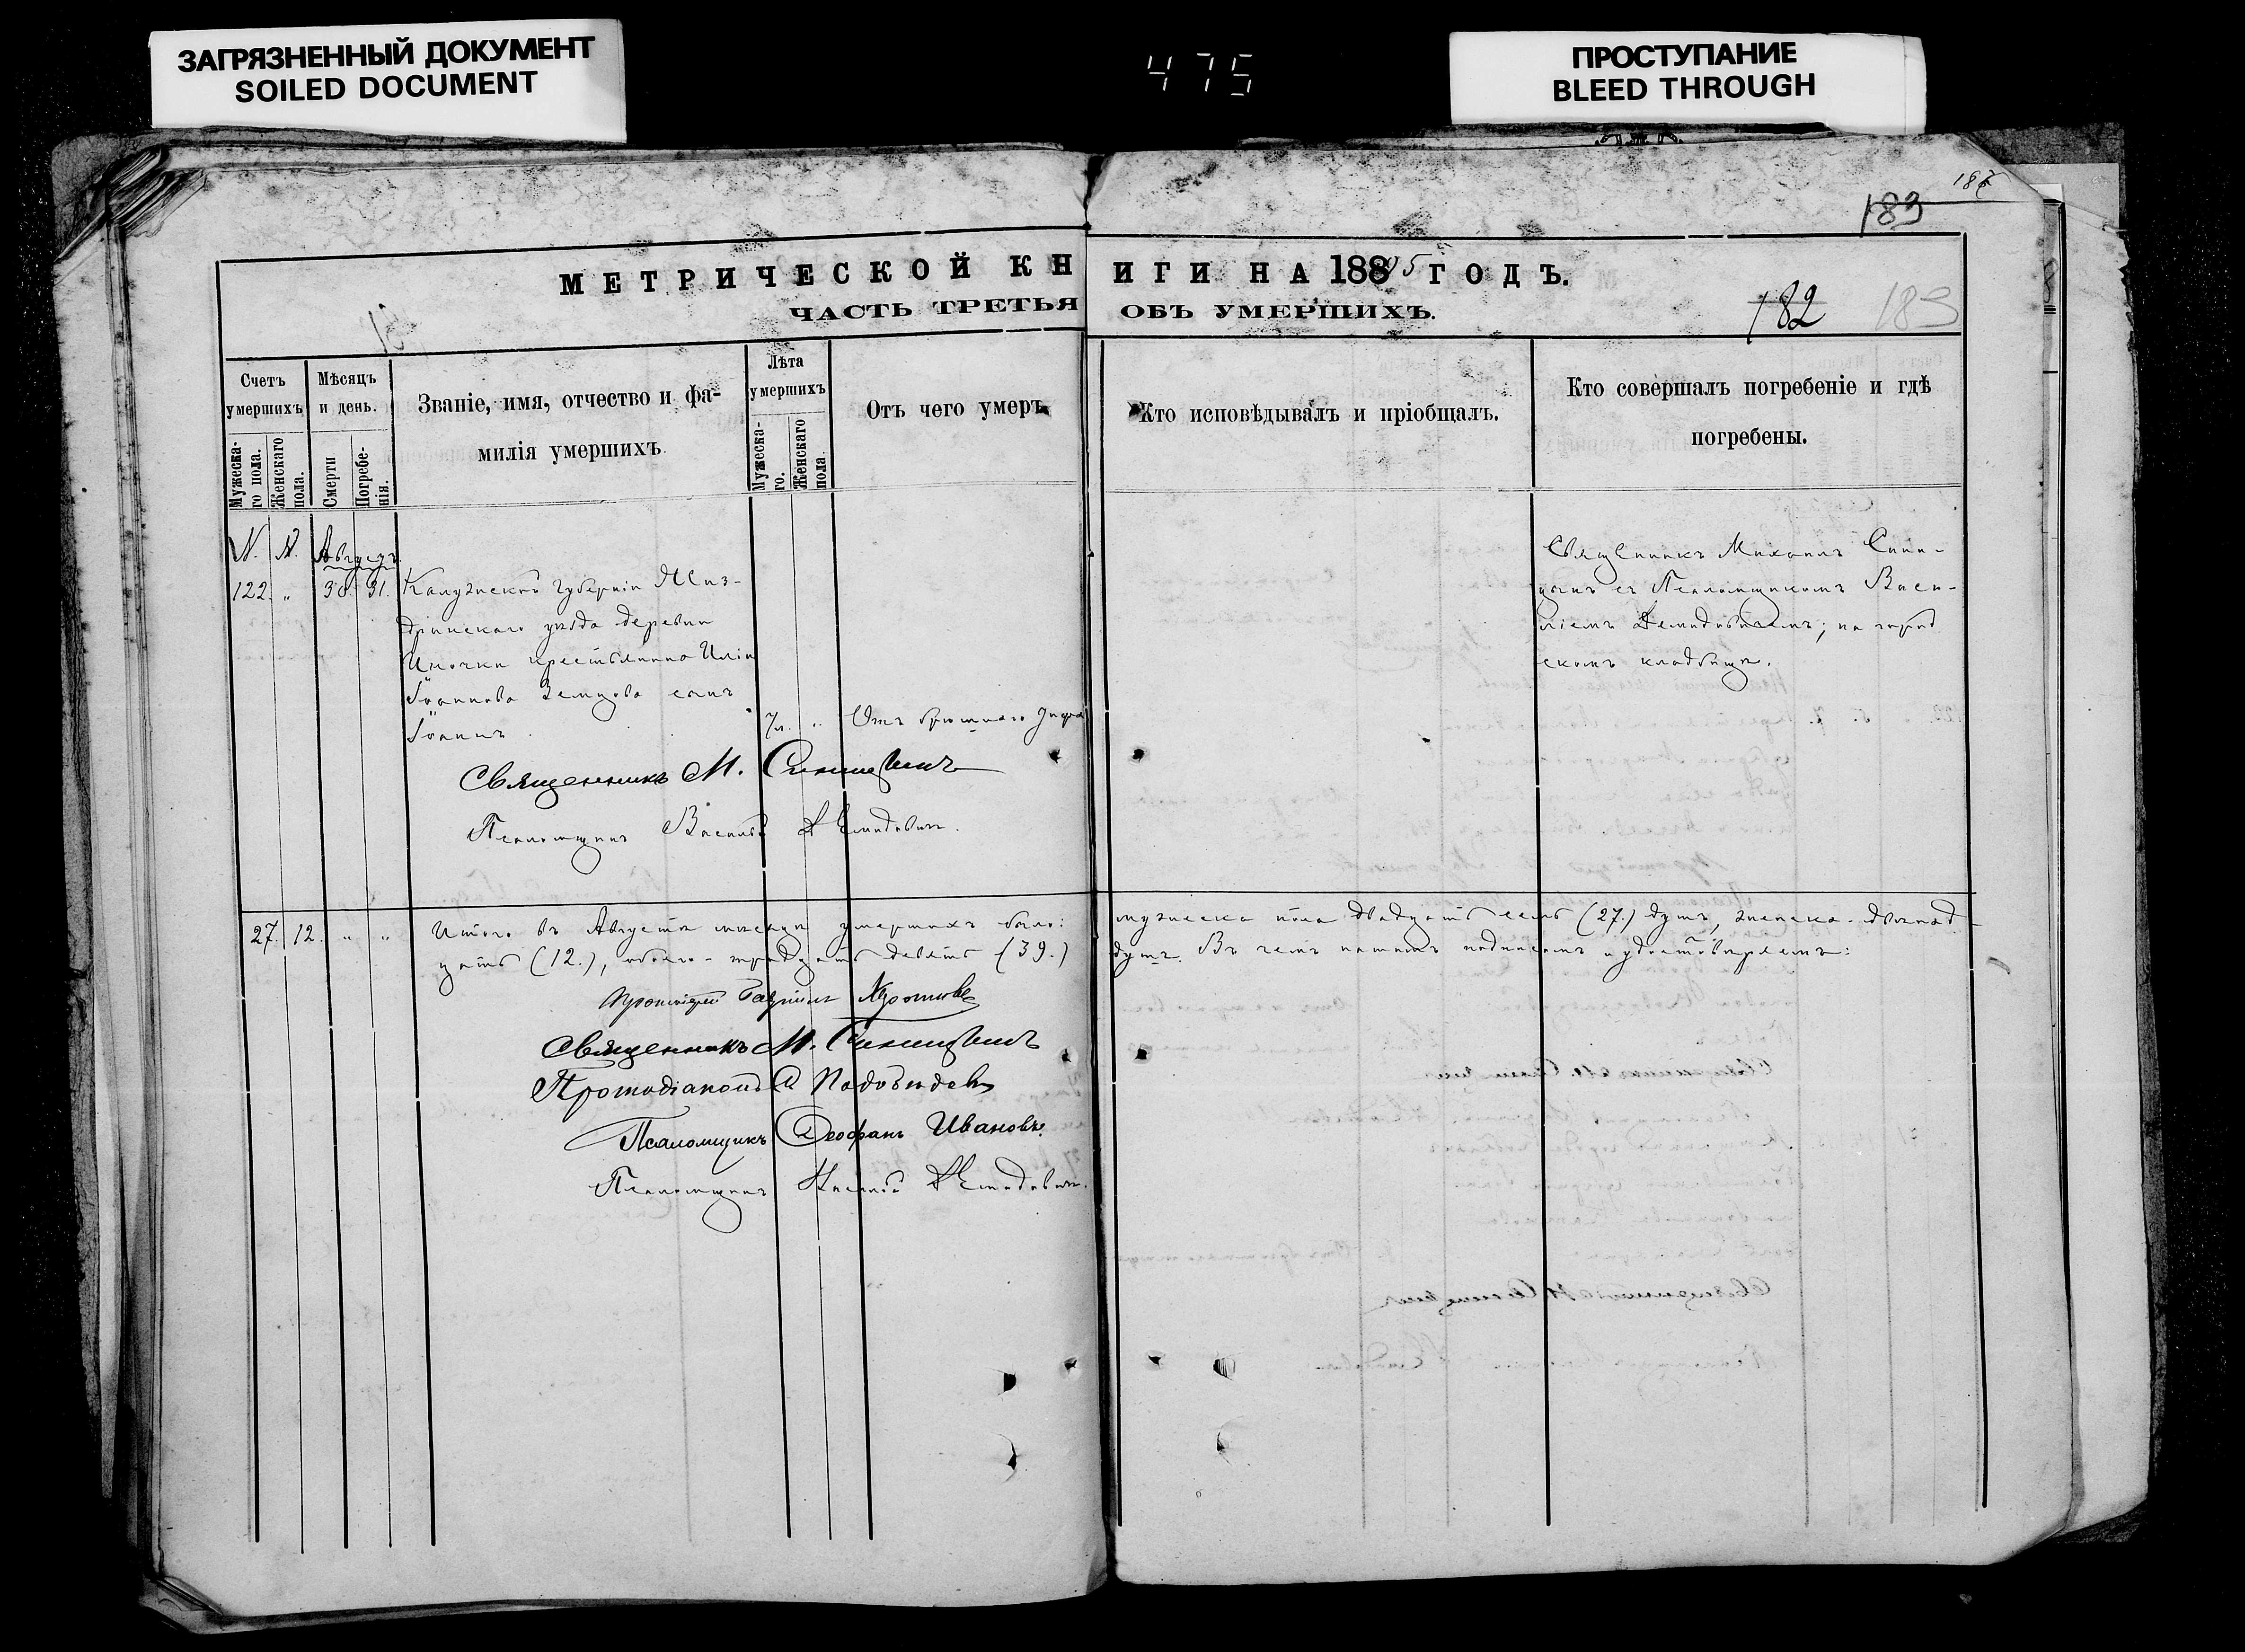 ЗАГРЯЗНЕННЫЙ ДОКУМЕНТ
SOILED DOCUMENT
475
ПРОСТУПАНИЕ
BLEED THROUGH
183
МЕТРИЧЕСКОЙ КНИГИ НА 1885 ГОДЪ.
ЧАСТЬ ТРЕТЬЯ ОБЪ УМЕРШИХЪ.
182 183
Счетъ умершихъ
Мужеска-го пола.
Женскаго пола.
Мѣсяцъ и день.
Смерти
Погребе-нія.
Званіе, имя, отчество и фа-
милія умершихъ
Лѣта умершихъ
Мужеска-го.
Женскаго пола
Отъ чего умеръ
Кто исповѣдывалъ и пріобщалъ.
Кто совершалъ погребеніе и гдѣ
погребены.
N. N. Августъ
122. „ 30. 31. Калужской губерніи Жиз-
дринскаго уѣзда деревни
крестьянина Иліи
Іоаннова Земцова сынъ
Іоаннъ 7л. „ Отъ брюшного
Священникъ Михаилъ Сини-
съ Псаломщикомъ Васи-
ліемъ Демидовичемъ; на город
скомъ кладбищѣ.
Священникъ М.
Псаломщикъ Василій Демидовичъ.
27. 12. „ „ Итого въ Августѣ мѣсяцѣ умершихъ было: мужеска пола двадцать семь (27.) душъ, женска - двѣнад
цать (12.), обоего - тридцать девять (39.) душъ. Въ чемъ нашимъ подписомъ удостовѣряемъ:
Протоіерей Гавріилъ
Священникъ М.
Протодіаконъ
Псаломщикъ Ѳеофанъ Ивановъ.
Псаломщикъ Василій Демидовичъ.